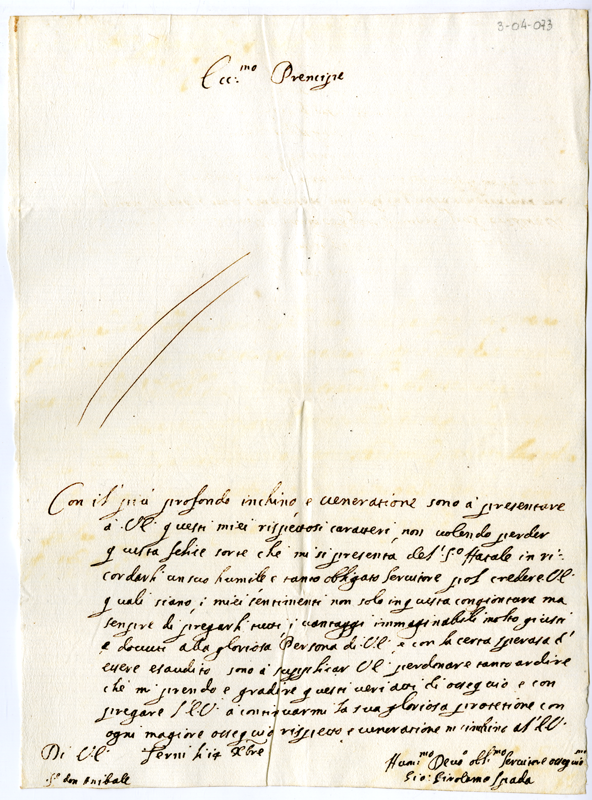 3-04-073
Ecc:mo Prencipe
Con il più profondo inchino e veneratione sono à presentare
à V.E. questi miei rispettosi caratteri, non volendo perder
questa felice sorte che mi si presenta del S.o Natale in ri:
cordarli un suo humile e tanto obligato servitore può credere V.E.
quali siano, i miei sentimenti non solo in questa congiontura ma
sempre di pregarli tutti i vantaggi immaginabili molto giusti
e dovuti alla gloriosa Persona di V.E. e con la certa speranza d'
essere esaudito sono à supplicar V.E. perdonare tanto ardire
che mi prendo e gradire questi veri atti di ossequio e con
pregare l'E.V. à continuarmi la sua gloriosa protetione con
ogni magiore ossequio rispetto e veneratione m'inchino al'E.V.
Di V.E. Terni li 14 Xbre
Humi:mo Devo obli:mo Servitore ossequio:mo
S.r don Anibale Gio: Girolamo Spada